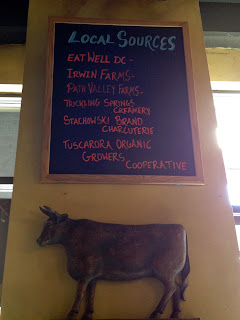 LOCAL SOURCES
EATWELL DC -
IRWIN FARMS -
PATH VALLEY FARMS -
TRICKLING SPRINGS
CREAMERY
STACHOWSKI BRAND
CHARCUTERIE
TUSCARORA ORGANIC
GROWERS
COOPERATIVE